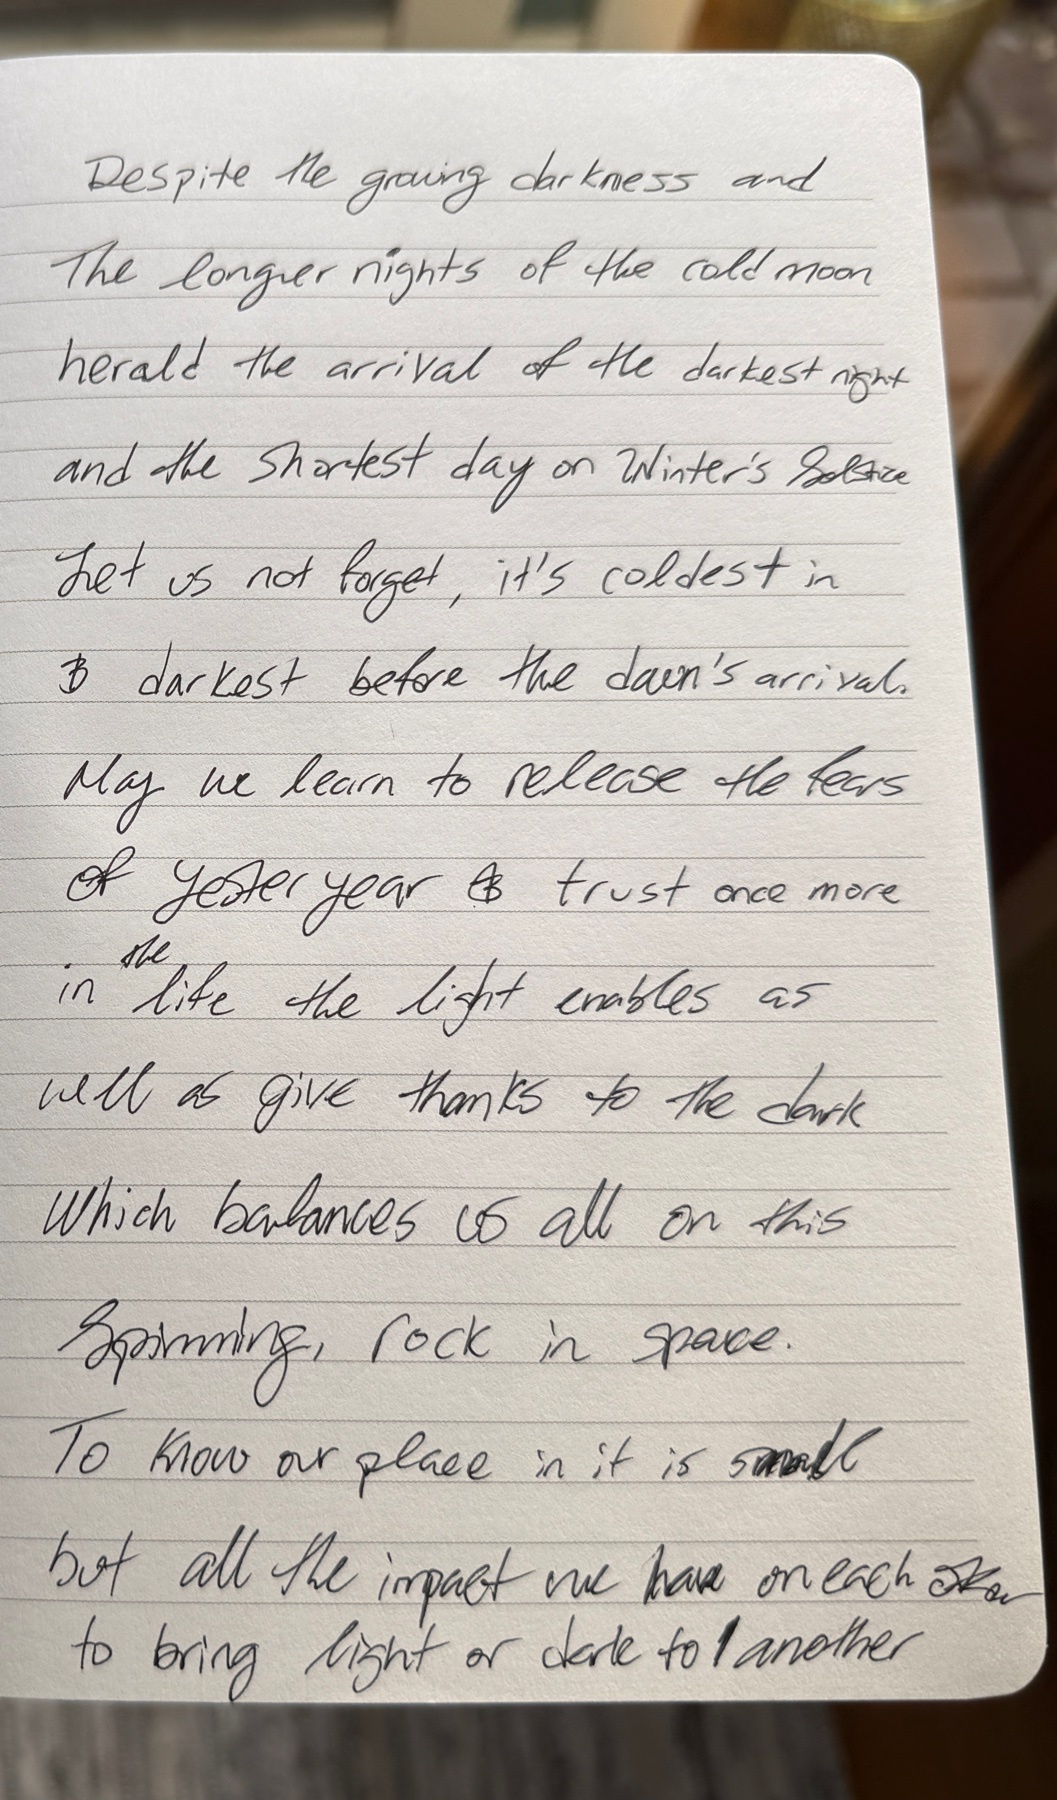 Despite the growing darkness and
The longer nights of the cold moon
herald the arrival of the darkest night
and the shortest day on Winter's Solstice
Let us not forget, it's coldest in
& darkest before the dawn's arrival.
May we learn to release the fears
of yesteryear & trust once more
in the life the light enables as
well as give thanks to the dark
Which balances us all on this
Spinning, rock in space.
To Know our place in it is small
but all the impact we have on each other
to bring light or dark to 1 another